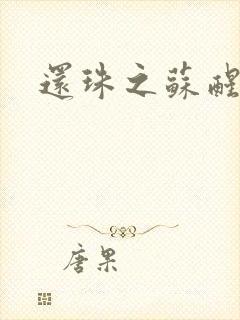 還珠之蘇醒
唐果